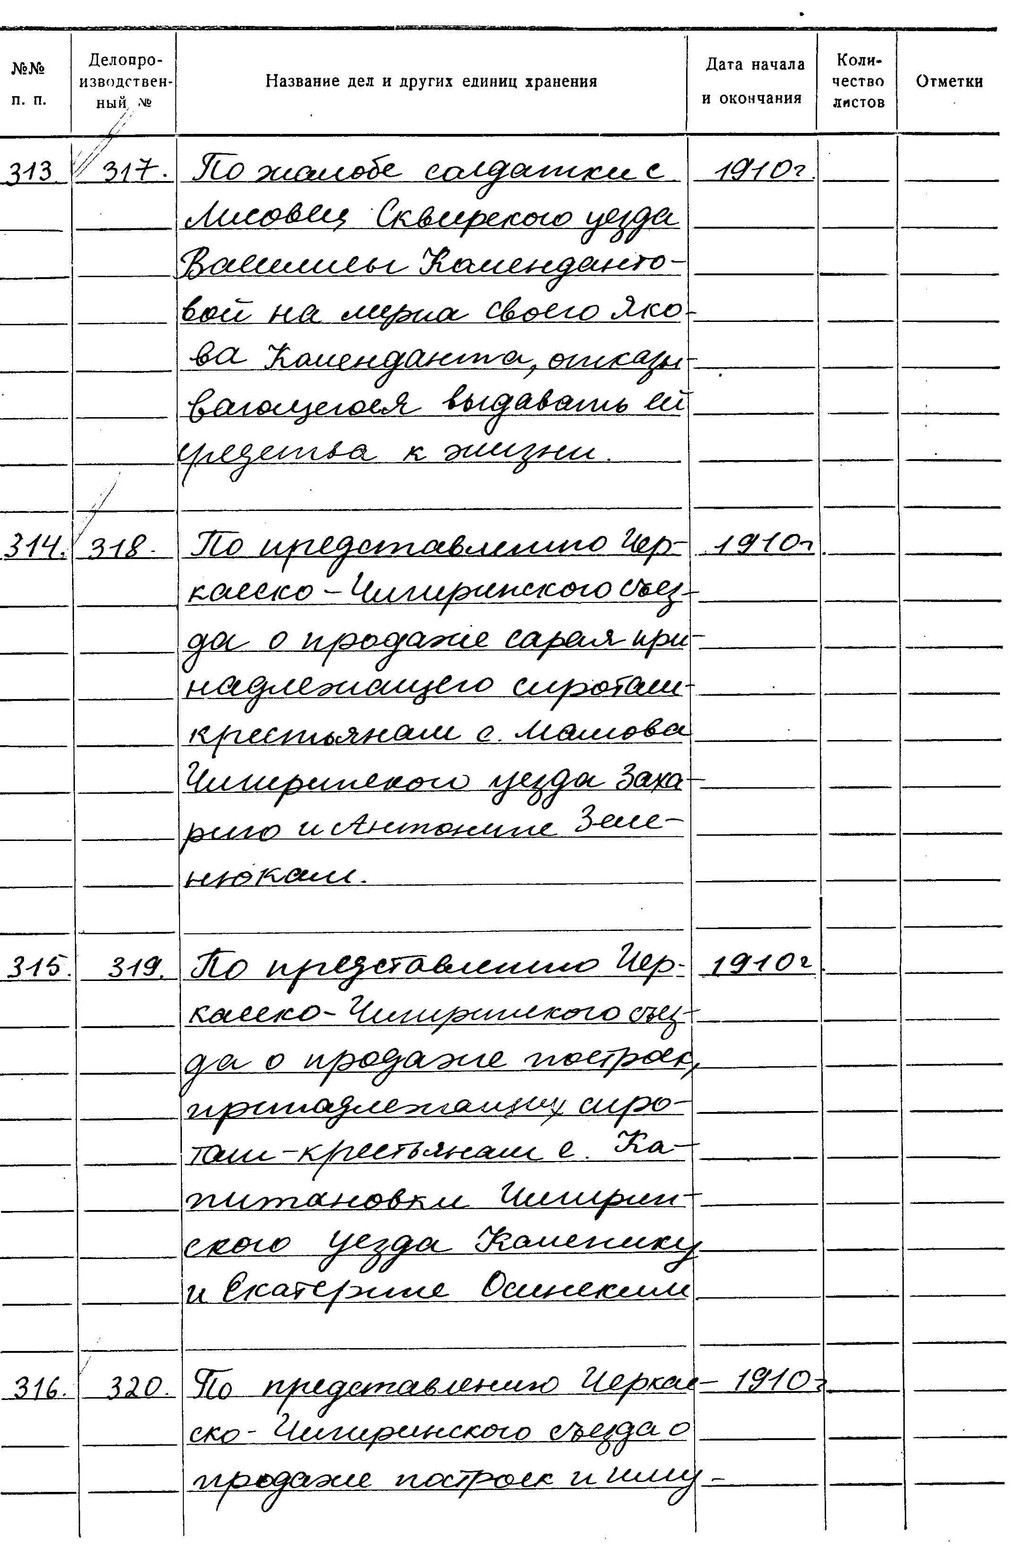 №№ п. п.
Делопро-
изводствен-
ный №
Название дел и других единиц хранения
Дата начала
и окончания
Коли-
чество
листов
Отметки
313. 317. По жалобе солдатки с. 1910г.
Лисовец Сквирского уезда
Василисы Комендантo-
вой на мужа своего Яко-
ва Коменданта, отказы-
вающегося выдавать ей
средства к жизни.
314. 318. По представлению Чер- 1910г
касско-Чигиринского съез-
да о продаже сарая при-
надлежащего сиротам-
крестьянам с. Мамова
Чигиринского уезда Заха-
рию и Антонине Земе-
нюкам.
315. 319. По представлению Чер- 1910г
касско-Чигиринского съез-
да о продаже построек,
принадлежащих сиро-
там-крестьянам с. Ка-
питановки Чигирин-
ского уезда Каленику
и Екатерине Осинским
316. 320. По представлению Черкас- 1910г
ско-Чигиринского съезда о
продаже построек и иму-